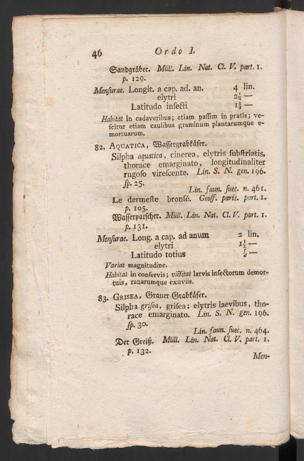 46 Ordo I.
Sandgräber. Müll. Lin. Nat. Cl. V. part. 1.
p. 129.
Mensurae. Longit. a cap. ad. an. 4 lin.
elytri 2¼ —
Latitudo insecti 1¼ —
Habitat In cadaveribus; etiam passim in pratis; ve-
scitur etiam caulibus graminum plantarumque e-
mortuarum.
82. AQUATICA, Wassergrabkäfer.
Silpha aquatica, cinerea, elytris substriatis,
thorace emarginato, longitudinaliter
rugoso virescente. Lin. S. N. gen. 196.
sp. 25.
Lin. faun. suec. n. 461.
Le dermeste bronsé. Geoff. paris. part. 1.
p. 105.
Wasserpatscher. Müll. Lin. Nat. Cl. V. part. 1.
p. 131.
Mensurae. Long. a cap. ad anum 2 lin.
elytri —
Latitudo totius —
Variat magnitudine.
Habitat in confervis; victitat larvis insectorum demor-
tuis, ranarumque exuviis.
83. GRISEA. Grauer Grabkäfer.
Silpha grisea, grisea; elytris laevibus, tho-
race emarginato. Lin. S. N. gen. 196.
sp. 30.
Lin. faun. suec. n. 464.
Der Greiß. Müll. Lin. Nat. Cl. V. part. 1.
p. 132.
Men-